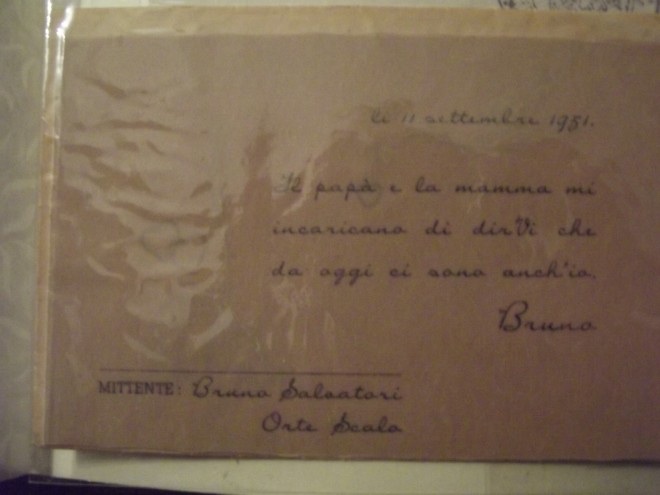 li 11 settembre 1951.
Il papà e la mamma mi
incaricano di dirVi che
da oggi ci sono anch'io.
Bruno
MITTENTE: Bruno Salvatori
Orte Scalo